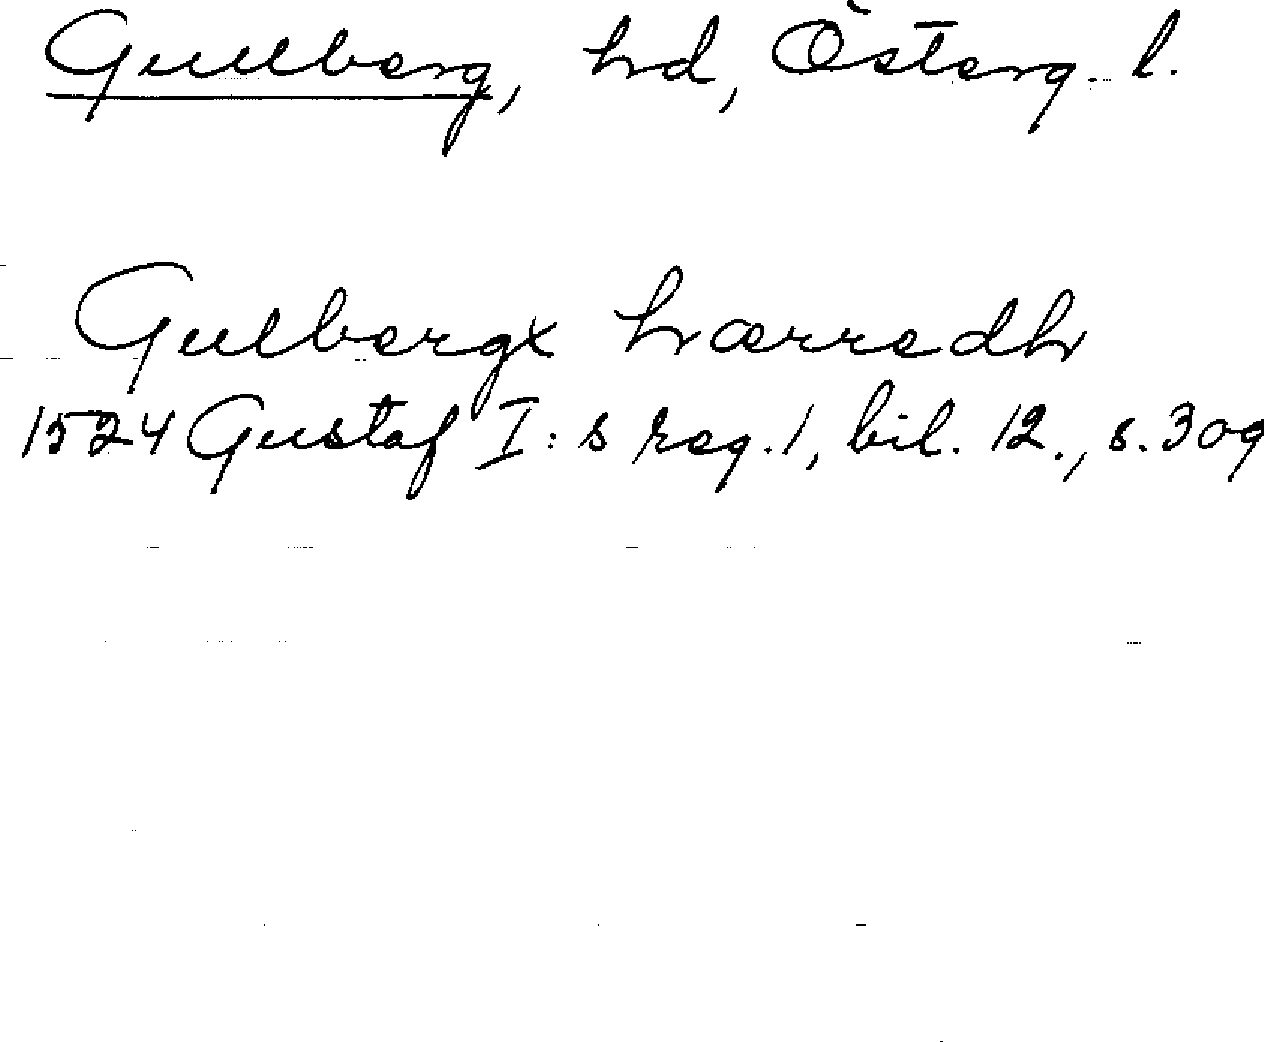 Gullberg, hd, Österg. l.
Gulbergx hærredh
1524 Gustaf I:s reg. 1, bil. 12., s. 309